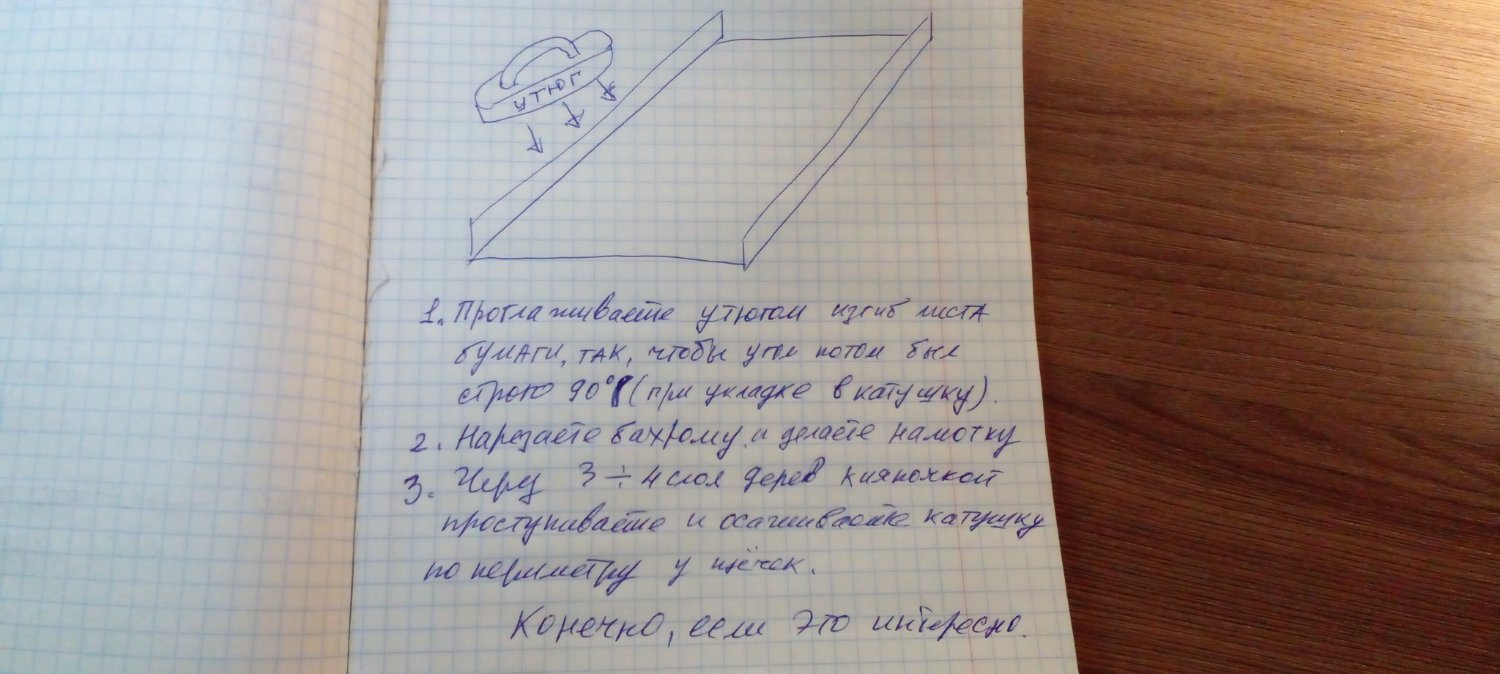 УТЮГ
1. Проглаживаете утюгом изгиб листа
бумаги, так, чтобы угол потом был
строго 90° (при укладке в катушку).
2. Нарезаете бахрому и делаете намотку
3. Через 3÷4 слоя дерев киянолкой
простукиваете и осаживаете катушку
по периметру у щёчек.
Конечно, если это интересно.